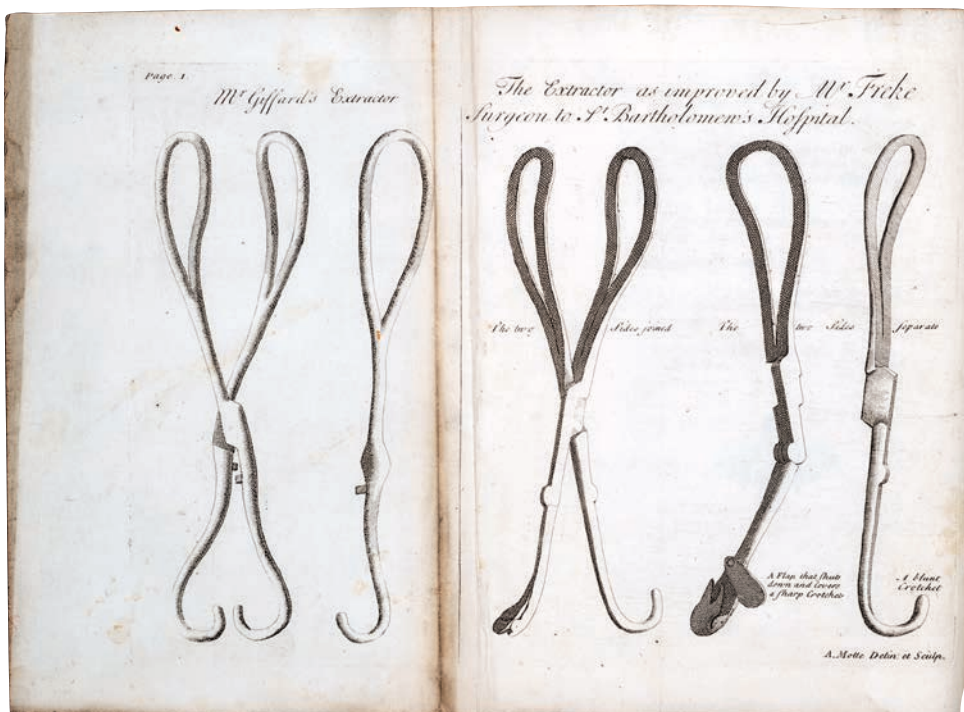 Page 1.
Mr Giffard's Extractor
The Extractor as improved by Mr Freke
Surgeon to St Bartholomew's Hospital.
The two Sides joined
The two Sides separate
A Flap that shuts
down and covers
a sharp Crotchet
A blunt
Crotchet
A. Motte Delin. et Sculp.